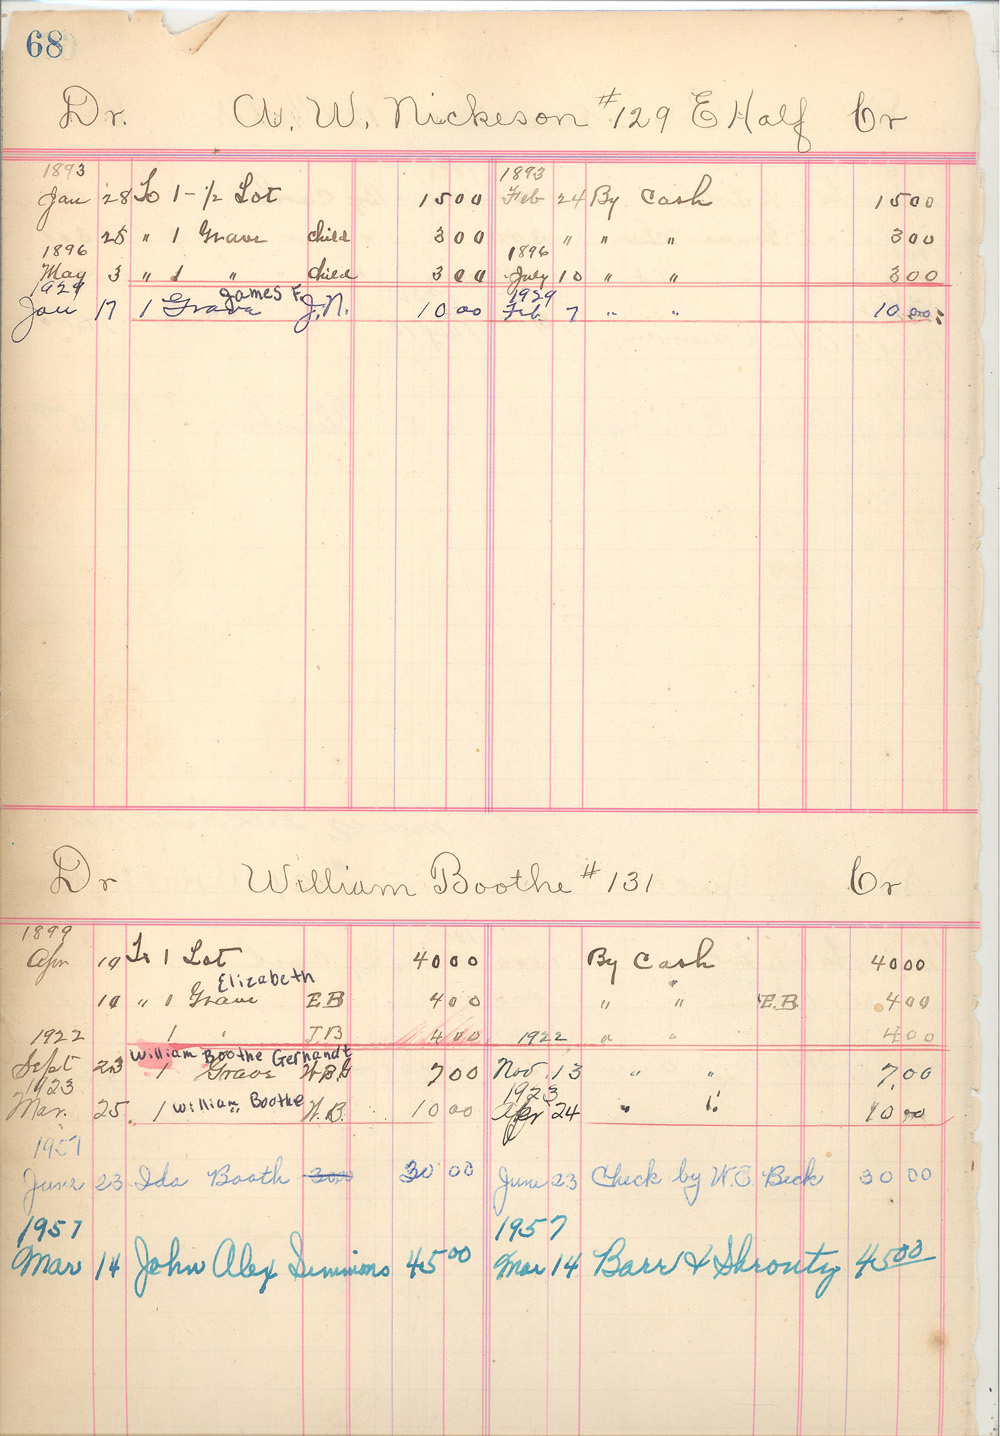 68
Dr. A. W. Nickeson #129 E Half Cr
1893 1893
Jan 28 To 1 - 1/2 Lot 15 00 Feb 24 By Cash 15 00
28 " 1 Grave child 3 00 " " " 3 00
1896 1896
May 3 " 1 " child 3 00 July 10 " " 3 00
1929 James F. 1929
Jan 17 1 Grave J.N. 10 00 Feb. 7 " " 10 00
Dr William Boothe #131 Cr
1899
Apr 10 To 1 Lot 40 00 By Cash 40 00
Elizabeth
10 " 1 Grave E B 4 00 " " E.B 4 00
1922 1 " J B 4 00 1922 " " 4 00
William Boothe Gerhandt
Sept 23 1 Grave W.B.G 7 00 Nov. 13 " " 7.00
1923 1923
Mar. 25 1 William " Boothe W.B. 10 00 Apr 24 " " 10 00
1951
June 23 Ida Booth 30 00 30 00 June 23 Check by W.E. Beck 30 00
1957 1957
Mar 14 John Alex Simmons 45 00 Mar 14 Barr & Shrouty 45 00